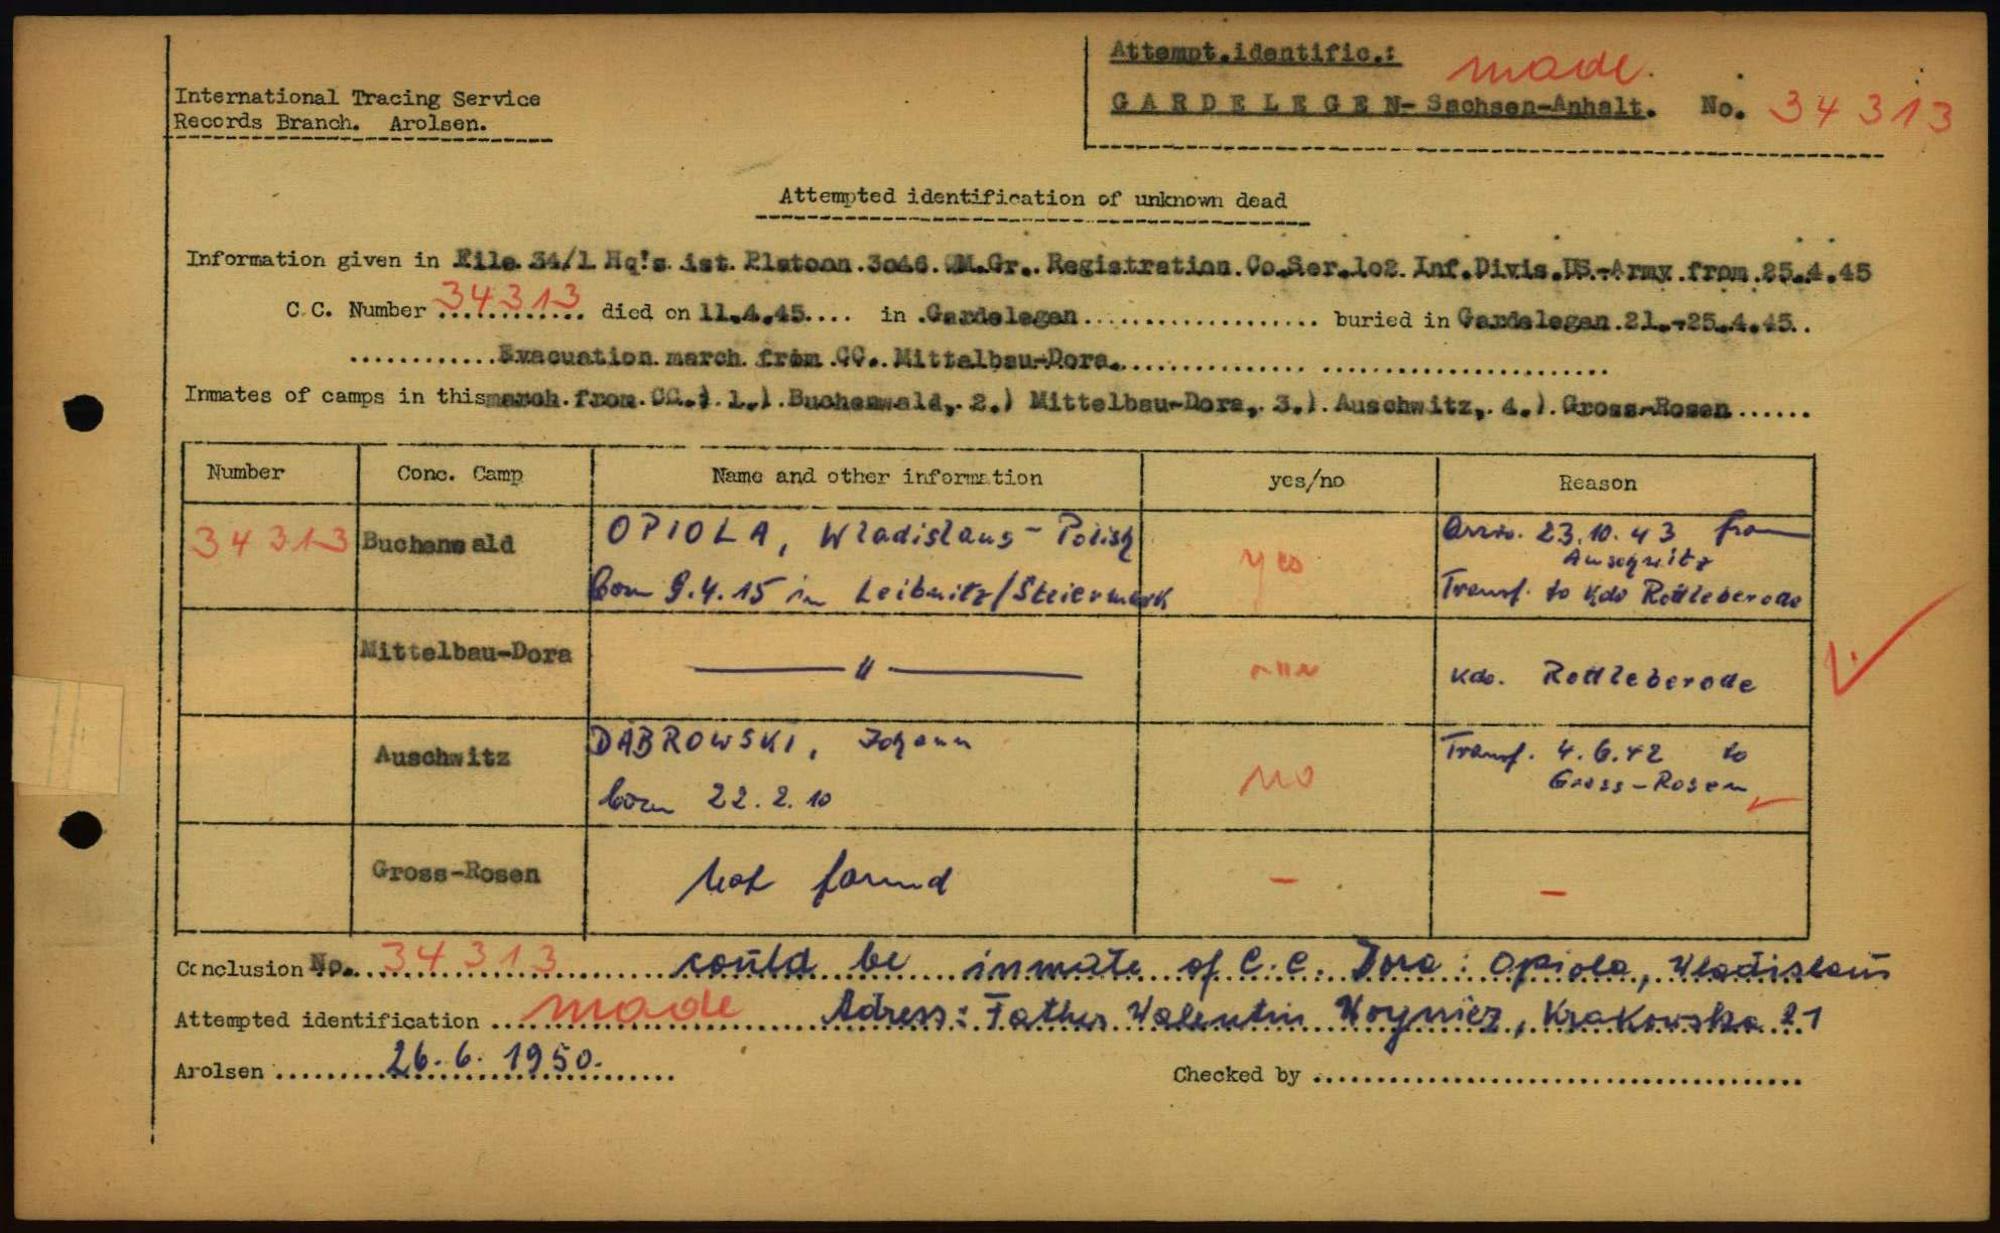 Attempt.identific.: made.
International Tracing Service
GARDELEGEN- Sachsen-Anhalt. No. 34313
Records Branch. Arolsen.
Attempted identification of unknown dead
Information given in File 34/1 Hq's 1st Platoon 3046. QM.Gr. Registration.Co.Ser.1o2 Inf.Divis.US.-Army from 25.4.45
C.C. Number 34313 died on 11.4.45.... in .Gardelegen........ buried in Gardelegen 21.-25.4.45..
............Evacuation march from CC. Mittelbau-Dora...............
Inmates of camps in this march from CC.: 1.) Buchenwald, 2.) Mittelbau-Dora, 3.) Auschwitz, 4.) Gross-Rosen......
Number Conc. Camp Name and other information yes/no Reason
34313 Buchenwald OPIOLA, Wladislaus - Polish yes Arriv. 23.10.43 from Auschwitz
born 9.4.15 in Leibnitz/Steiermark Transf. to Kdo Rottleberode
Mittelbau-Dora — " — Kdo. Rottleberode
Auschwitz DABROWSKI, Johann no Transf. 4.6.42 to Gross-Rosen
born 22.2.10
Gross-Rosen Not found - -
Conclusion No. 34313 could be inmate of C.C. Dora: Opiola, Wladislaus
Attempted identification made Adress: Father Walentin Krakowska 21
Arolsen 26.6.1950. Checked by ..........